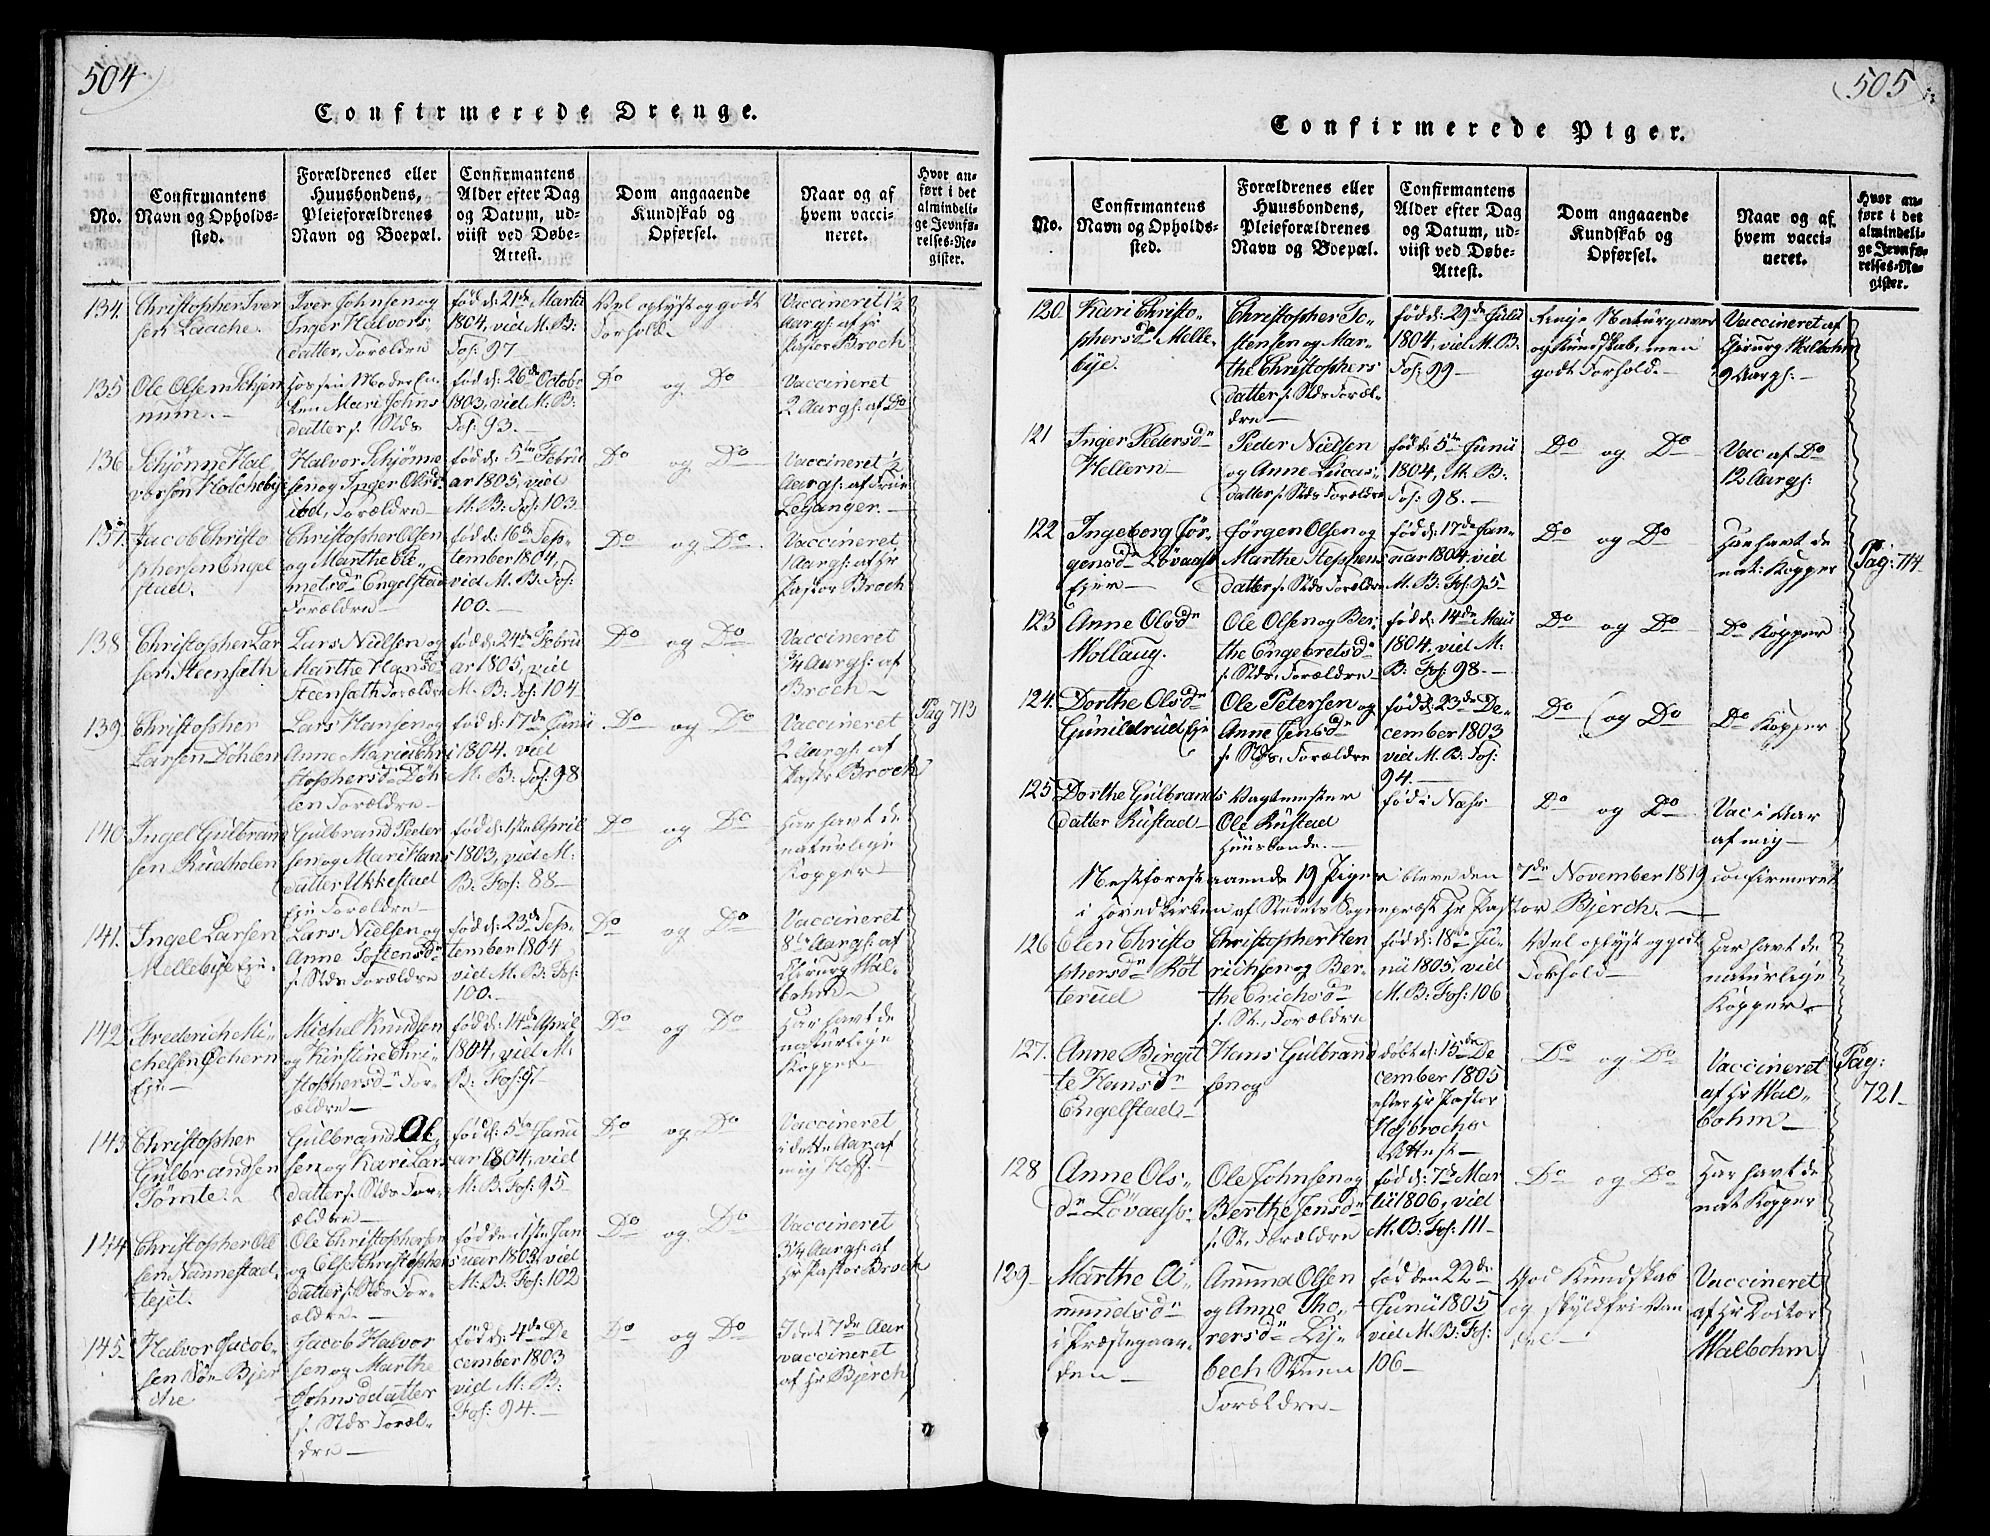 504
Confirmerede Drenge.
No.
Confirmantens
Navn og Opholds-
sted.
Forældrenes eller
Huusbondens,
Pleieforældrenes
Navn og Boepæl.
Confirmantens
Alder efter Dag
og Datum, ud-
viist ved Døbe-
Attest.
Dom angaaende
Kundskab og
Opførsel.
Naar og af
hvem vacci-
neret.
Hvor an-
ført i det
almindeli-
ge Jevnfø-
relses-Re-
gister.
134.
Christopher Iver
sen Laache.
Iver Johnsen og
Inger Halvors
datter, Forældre
fød d: 21de Martii
1804, vid M. B:
Fos: 97
Vel oplyst og godt
Forhold.
Vaccineret 1½
Aargs: af Hr
Pastor Broch
135
Ole Olsen Schjen
num.
Hos sin Moder En
ken Mari Johns
datter s. Stds
fød d: 26de Octobr
1803, vid M. B:
Fos: 93.
Do og Do
Vaccineret
2 Aargs: af Do
136
Schjønne Hal
vorsen Holchebye
Halvor Schjønne
sen og Inger Olsd.
ibd, Forældre
fød d: 5te Febru
ar 1805, vid
M. B: Fos: 103
Do og Do
Vaccineret ½
Aargs: af Frue
Leganger.
137.
Jacob Christo
phersen Engel
stad.
Christopher Olsen
og Marthe Cle-
metsdn Engelstad
Forældre
fød d: 16de Sep-
tember 1804,
vid M. B. Fos:
100.
Do og Do
Vaccineret
1 Aargs: af Hr
Pastor Broch
138.
Christopher Lar
sen Steensæth
Lars Nielsen og
Marthe Hansd.
Steensæth Forældre
fød d: 24de Febru
ar 1805, vid
M. B: Fos: 104
Do og Do
Vaccineret
¾ Aargs: af
Broch
139.
Christopher
Larsen Döhlen
Lars Hansen og
Anne Marie Chri
stophersdn Döh
len Forældre
fød d: 17de Junii
1804. vid
M. B: Fos: 98
Do og Do
Vaccineret
2 Aargs: af
Pastor Broch
Pag 713
140.
Ingel Gulbrand
sen Röieholen
Gulbrand Peder
sen og Mari Hans
datter Ukkestad
Eje Forældre
fød d: 1ste April
1803, vid M.
B: Fos: 88
Do og Do
Har havt de
naturlige
Kopper
141.
Ingel Larsen
Mellebye Eje.
Lars Nielsen og
Anne Tostensdn
s. Stds Forældre
fød d: 23de Sep-
tember 1804
vid M. B: Fos:
100.
Do og Do
Vaccineret
8te Aargs: af
Chirurg Wal-
bohm
142.
Frederich Mi-
chelsen Ochern
Eje
Michel Knudsen
og Kirstine Chri-
stophersdn For-
ældre
fød d: 14de April
1804, vid M.
B: Fos: 97
Do og Do
Har havt de
naturlige
Kopper
143.
Christopher
Gulbrandsen
Tömte.
Gulbrand Ol
sen og Kari Lars
datter s. Stds For-
ældre
fød d: 5te Janu
ar 1804, vid
M. B. Fos: 95
Do og Do
Vaccineret
i dette Aar af
mig
144
Christopher Ol
sen Nannestad
tejet.
Ole Christophersen
og Else Christophers
datter s. Stds For-
ældre.
fød de 1ste Jan
uar 1803, vid
M: B. Fos: 102
Do og Do
Vaccineret
3¼ Aargs: af
Hr Pastor Broch
145.
Halvor Jacob-
sen Bjer
che
Jacob Halvor
sen og Marthe
Johnsdatter
s. Stds Foræl-
dre
fød d: 4de De
cember 1803
vid M. B:
Fos: 94.
Do og Do
I det 7de Aar
vaccineret
af Hr Bjerch
505
Confirmerede Piger.
No.
Confirmantens
Navn og Opholds-
sted.
Forældrenes eller
Huusbondens,
Pleieforældrenes
Navn og Boepæl.
Confirmantens
Alder efter Dag
og Datum, ud-
viist ved Døbe-
Attest.
Dom angaaende
Kundskab og
Opførsel.
Naar og af
hvem vacci-
neret.
Hvor an-
ført i det
almindeli-
ge Jevnfø-
relses-Re-
gister.
120.
Kari Christo-
phersdn Melle-
bye.
Christopher To-
stensen og Mar-
the Christophers
datter s. Stds Foræl-
dre
fød d: 29de Julii
1804, vid M. B:
Fos: 99
Ringe Naturgaver
og Kundskab, men
godt Forhold.
Vaccineret af
Chirurg Walbohm
9 Aargs:
121
Inger Pedersdn
Hellern
Peder Nielsen
og Anne Lucas-
datter s. Stds Forældre
fød d: 5te Junii
1804, M. B:
Fos: 98.
Do og Do
Vac af Do
12 Aargs:
122
Ingeborg Jør-
gensdn Lövaas
Ejer
Jørgen Olsen og
Marthe Stephens
datter s. Stds Forældre
fød d: 17de Jan-
uar 1804 vid
M. B: Fos: 95
Do og Do
Har havt de
nat: Kopper
Pag: 714
123
Anne Olsdn
Wollaug.
Ole Olsen og Ber-
the Engebretsdn
s. Stds, Forældre
fød d: 14de Maii
1804, vid M.
B: Fos: 98.
Do og Do
Do Kopper
124.
Dorthe Olsdn
Gunildrud Eje
Ole Petersen og
Anne Jensdn
s. Stds, Forældre
fød d: 23de De-
cember 1803
vid M. B: Fos:
94.
Do og Do
Do Kopper
125
Dorthe Gulbrands
datter Rustad
Vagtmester
Ole Rustad
Huusbonde.
fød i Næs
Do og Do
Vac i Aar
af mig
Næstforestaaende 19 Piger bleve den 7de November 1819 confirmeret
i Hovedkirken af Stedets Sognepræst Hr Pastor Bjerch.
126
Elen Christo
phersdn Rot
terud
Christopher Hen
richsen og Ber-
the Erichsdn
s. St., Forældre
fød d: 18de Ju-
nii 1805, vid
M. B: Fos: 106
Vel oplyst og godt
Forhold
Har havt de
naturlige
Kopper
127.
Anne Birgit
te Hansdn
Engelstad
Hans Gulbrand
sen og
døbt d: 15de De
cember 1805
efter Hr Pastor
Hejbrochs
Attest
Do og Do
Vaccineret
af Hr Wal-
bohm
Pag:
721
128
Anne Ols-
dn Lövaas
Ole Johnsen og
Berthe Jensdn
s. St., Forældre
fød d: 7de Mar
tii 1806, vid
M: B: Fos: 111
Do og Do
Har havt de
nat Kopper
129
Marthe A-
mundsdn
i Præstegaar-
den
Amund Olsen
og Anne Tho-
rersdn Ly-
bech
Forældre
fød den 22de
Junii 1805
vid M. B: Fos:
106
God Kundskab
og skyldfri Van
del
Vaccineret
af Hr Doctor
Walbohm